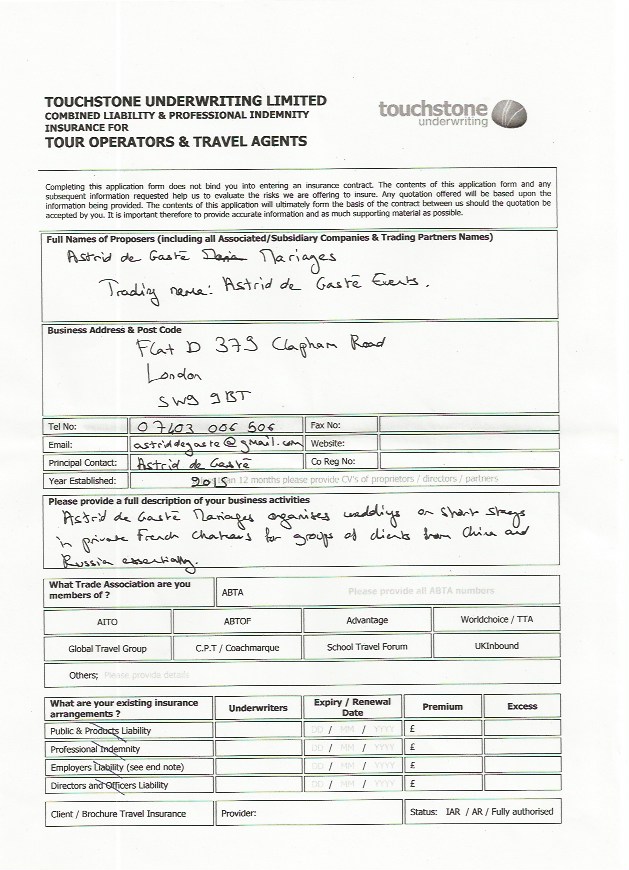 TOUCHSTONE UNDERWRITING LIMITED
COMBINED LIABILITY & PROFESSIONAL INDEMNITY
INSURANCE FOR
TOUR OPERATORS & TRAVEL AGENTS
touchstone
underwriting
Completing this application form does not bind you into entering an insurance contract. The contents of this application form and any
subsequent information requested help us to evaluate the risks we are offering to insure. Any quotation offered will be based upon the
information being provided. The contents of this application will ultimately form the basis of the contract between us should the quotation be
accepted by you. It is important therefore to provide accurate information and as much supporting material as possible.
Full Names of Proposers (including all Associated/Subsidiary Companies & Trading Partners Names)
Astrid de Gastē Mariages
Trading name: Astrid de Gastē Events.
Business Address & Post Code
Flat D 379 Clapham Road
London
SW9 9BT
Tel No: 07403 006 506 Fax No:
Email: astriddegaste@gmail.com Website:
Principal Contact: Astrid de Gastē Co Reg No:
Year Established: 2015 than 12 months please provide CV's of proprietors / directors / partners
Please provide a full description of your business activities
Astrid de Gastē Mariages organises weddings or short stays
in private French chateaus for groups of clients from China and
Russia essentially.
What Trade Association are you members of ? ABTA Please provide all ABTA numbers
AITO ABTOF Advantage Worldchoice / TTA
Global Travel Group C.P.T / Coachmarque School Travel Forum UKInbound
Others; Please provide details
What are your existing insurance arrangements ? Underwriters Expiry / Renewal Date Premium Excess
Public & Products Liability DD / MM / YYYY £
Professional Indemnity DD / MM / YYYY £
Employers Liability (see end note) DD / MM / YYYY £
Directors and Officers Liability DD / MM / YYYY £
Client / Brochure Travel Insurance Provider: Status: IAR / AR / Fully authorised